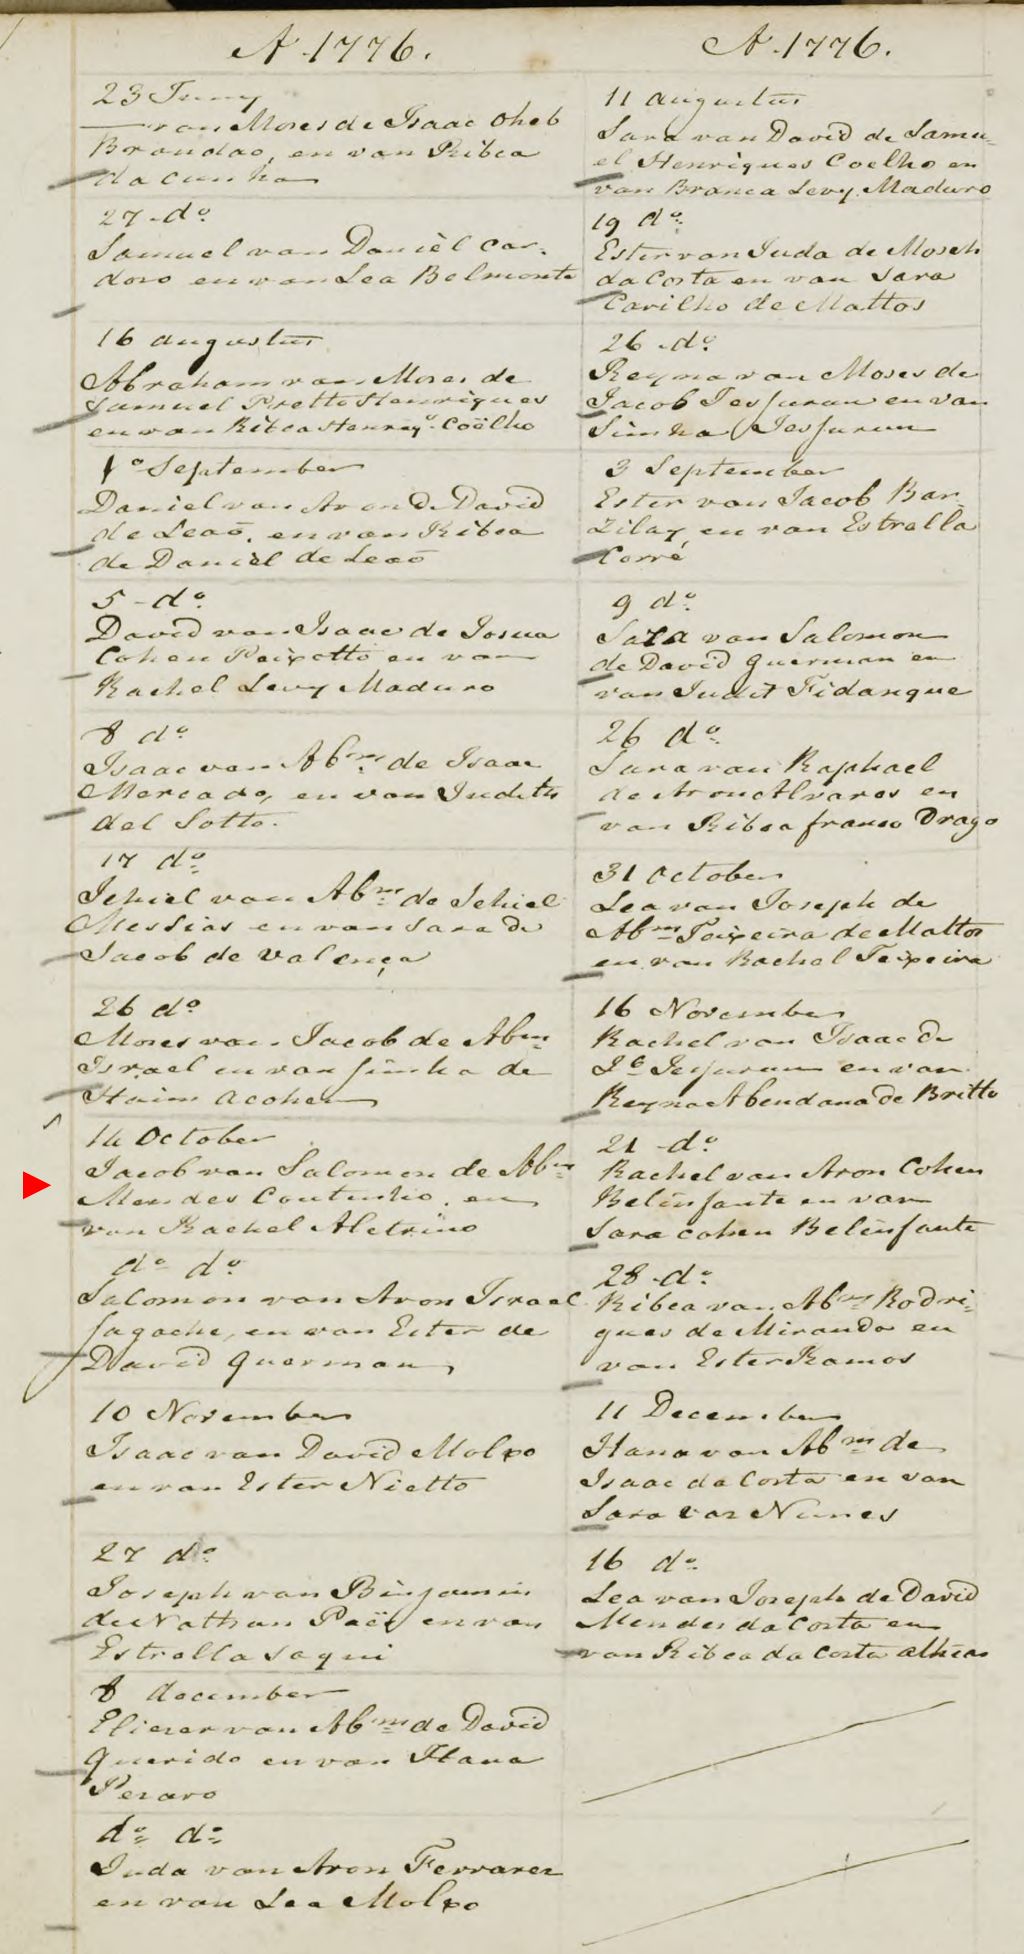 A. 1776.
23 Juny
— van Moses de Isaac Oheb
Brandao, en van Ribca
da Cunha
27 - do.
Samuel van Daniël Car-
dozo en van Lea Belmonte
16 augustus
Abraham van Moses de
Samuel Pretto Henriques
en van Ribca Henrq.s Coëlho
1o September
Daniel van Aron de David
de Leaõ, en van Ribca
de Daniël de Leaõ
5 - do.
David van Isaac de Josua
Cohen Peixotto en van
Rachel Levy Maduro
8 do
Isaac van Abm. de Isaac
Mercado, en van Judith
del Sotto.
17 do.
Jehiel van Abm. de Jehiel
Messias en van Sara de
Jacob de Valença
26 do
Moses van Jacob de Abm.
Israel en van Simha de
Haim acohen
14 October
Jacob van Salomon de Abm.
Mendes Coutinho, en
van Rachel Aletrino
do do.
Salomon van Aron Israel
Jagache, en van Ester de
David Querman,
10 November
Isaac van David Molxo
en van Ester Nietto
27 do.
Joseph van Binjamin
de Nathan Paës en van
Estrella Saqui
8 december
Eliezer van Abm. de David
Querido en van Hana
Pesaro
do. do.
Juda van Aron Ferrares
en van Lea Molxo
A. 1776.
11 augustus
Sara van David de Samu-
el Henriques Coelho en
van Branca Levy Maduro
19 do.
Ester van Juda de Moseh
da Costa en van Sara
Carilho de Mattos
26 - do.
Reyna van Moses de
Jacob Jesurun en van
Simha Jesurun
3 September
Ester van Jacob Bar
Zilay, en van Estrella
Corré
9 do.
Sara van Salomon
de David Querman en
van Judit Fidanque
26 do.
Sara van Raphael
de Aron Alvares en
van Ribca franco Drago
31 October
Lea van Joseph de
Abm. Teixeira de Mattos
en van Rachel Teixeira
16 November
Rachel van Isaac de
Jb. Jesurun en van
Reyna Abendana de Britto
21 - do.
Rachel van Aron Cohen
Belinfante en van
Sara cohen Belinfante
28 - do.
Ribca van Abm. Rodri-
gues de Miranda en
van Ester Ramos
11 December
Hana van Abm. de
Isaac da Costa en van
Sara vaz Nunes
16 do.
Lea van Joseph de David
Mendes da Costa en
van Ribca da Costa athias